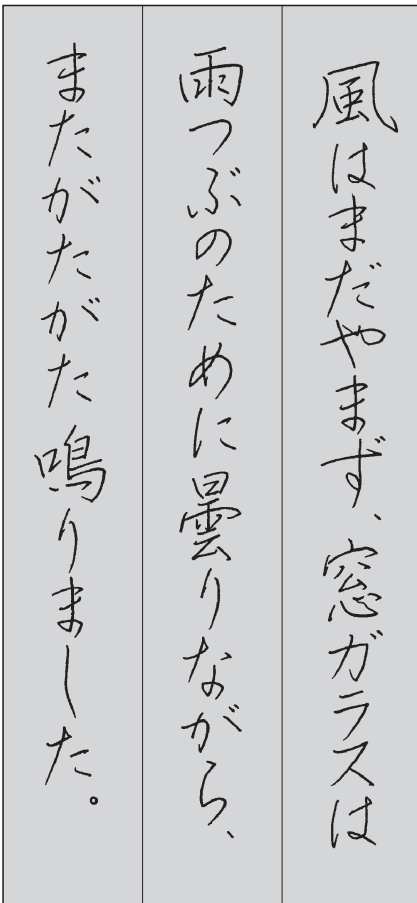 風はまだやまず、窓ガラスは
雨つぶのために曇りながら、
またがたがた鳴りました。